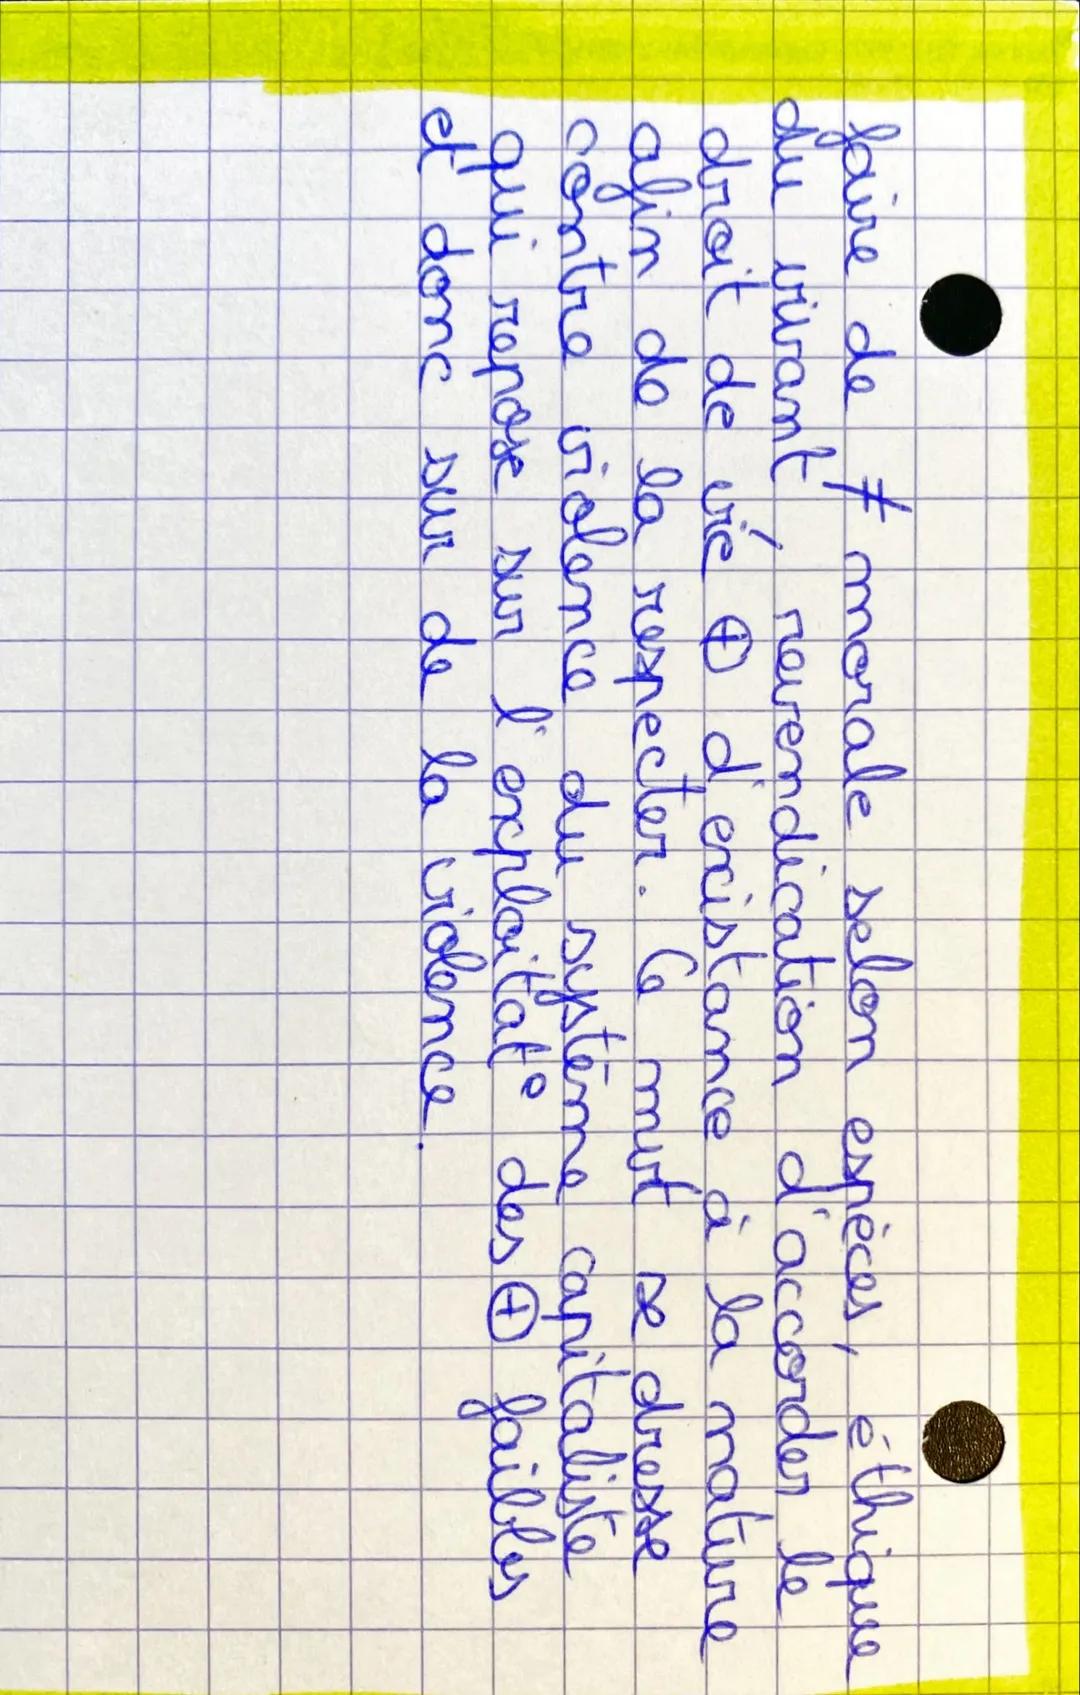 faire de ≠ morale selon espèces, éthique
du vivant, revendication d'accorder le
droit de vie ⊕ d'existance à la nature
afin de la respecter. Ce mvt se dresse
contre violence du système capitaliste
qui repose sur l'exploitat° des ⊕ faibles
et donc sur de la violence.